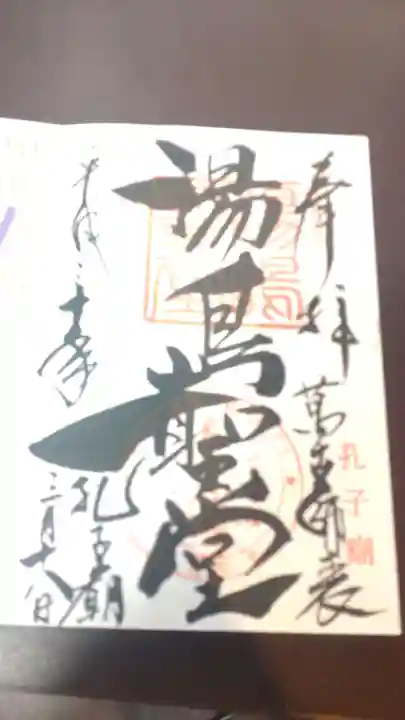 奉拝
萬世師表
孔子廟
湯島聖堂
平成三十年
三月十八日
孔子廟